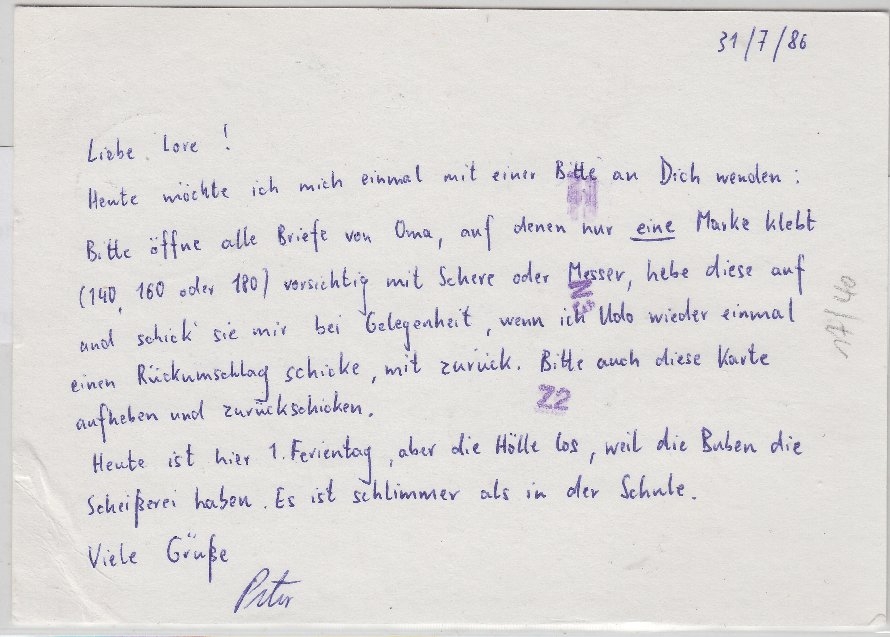 31/7/86
Liebe Lore !
Heute möchte ich mich einmal mit einer Bitte an Dich wenden :
Bitte öffne alle Briefe von Oma, auf denen nur eine Marke klebt
(140, 160 oder 180) vorsichtig mit Schere oder Messer, hebe diese auf
und schick' sie mir bei Gelegenheit, wenn ich Udo wieder einmal
einen Rückumschlag schicke, mit zurück. Bitte auch diese Karte
aufheben und zurückschicken.
Z2
Heute ist hier 1. Ferientag, aber die Hölle los, weil die Buben die
Scheißerei haben. Es ist schlimmer als in der Schule.
Viele Grüße
Peter
17/40